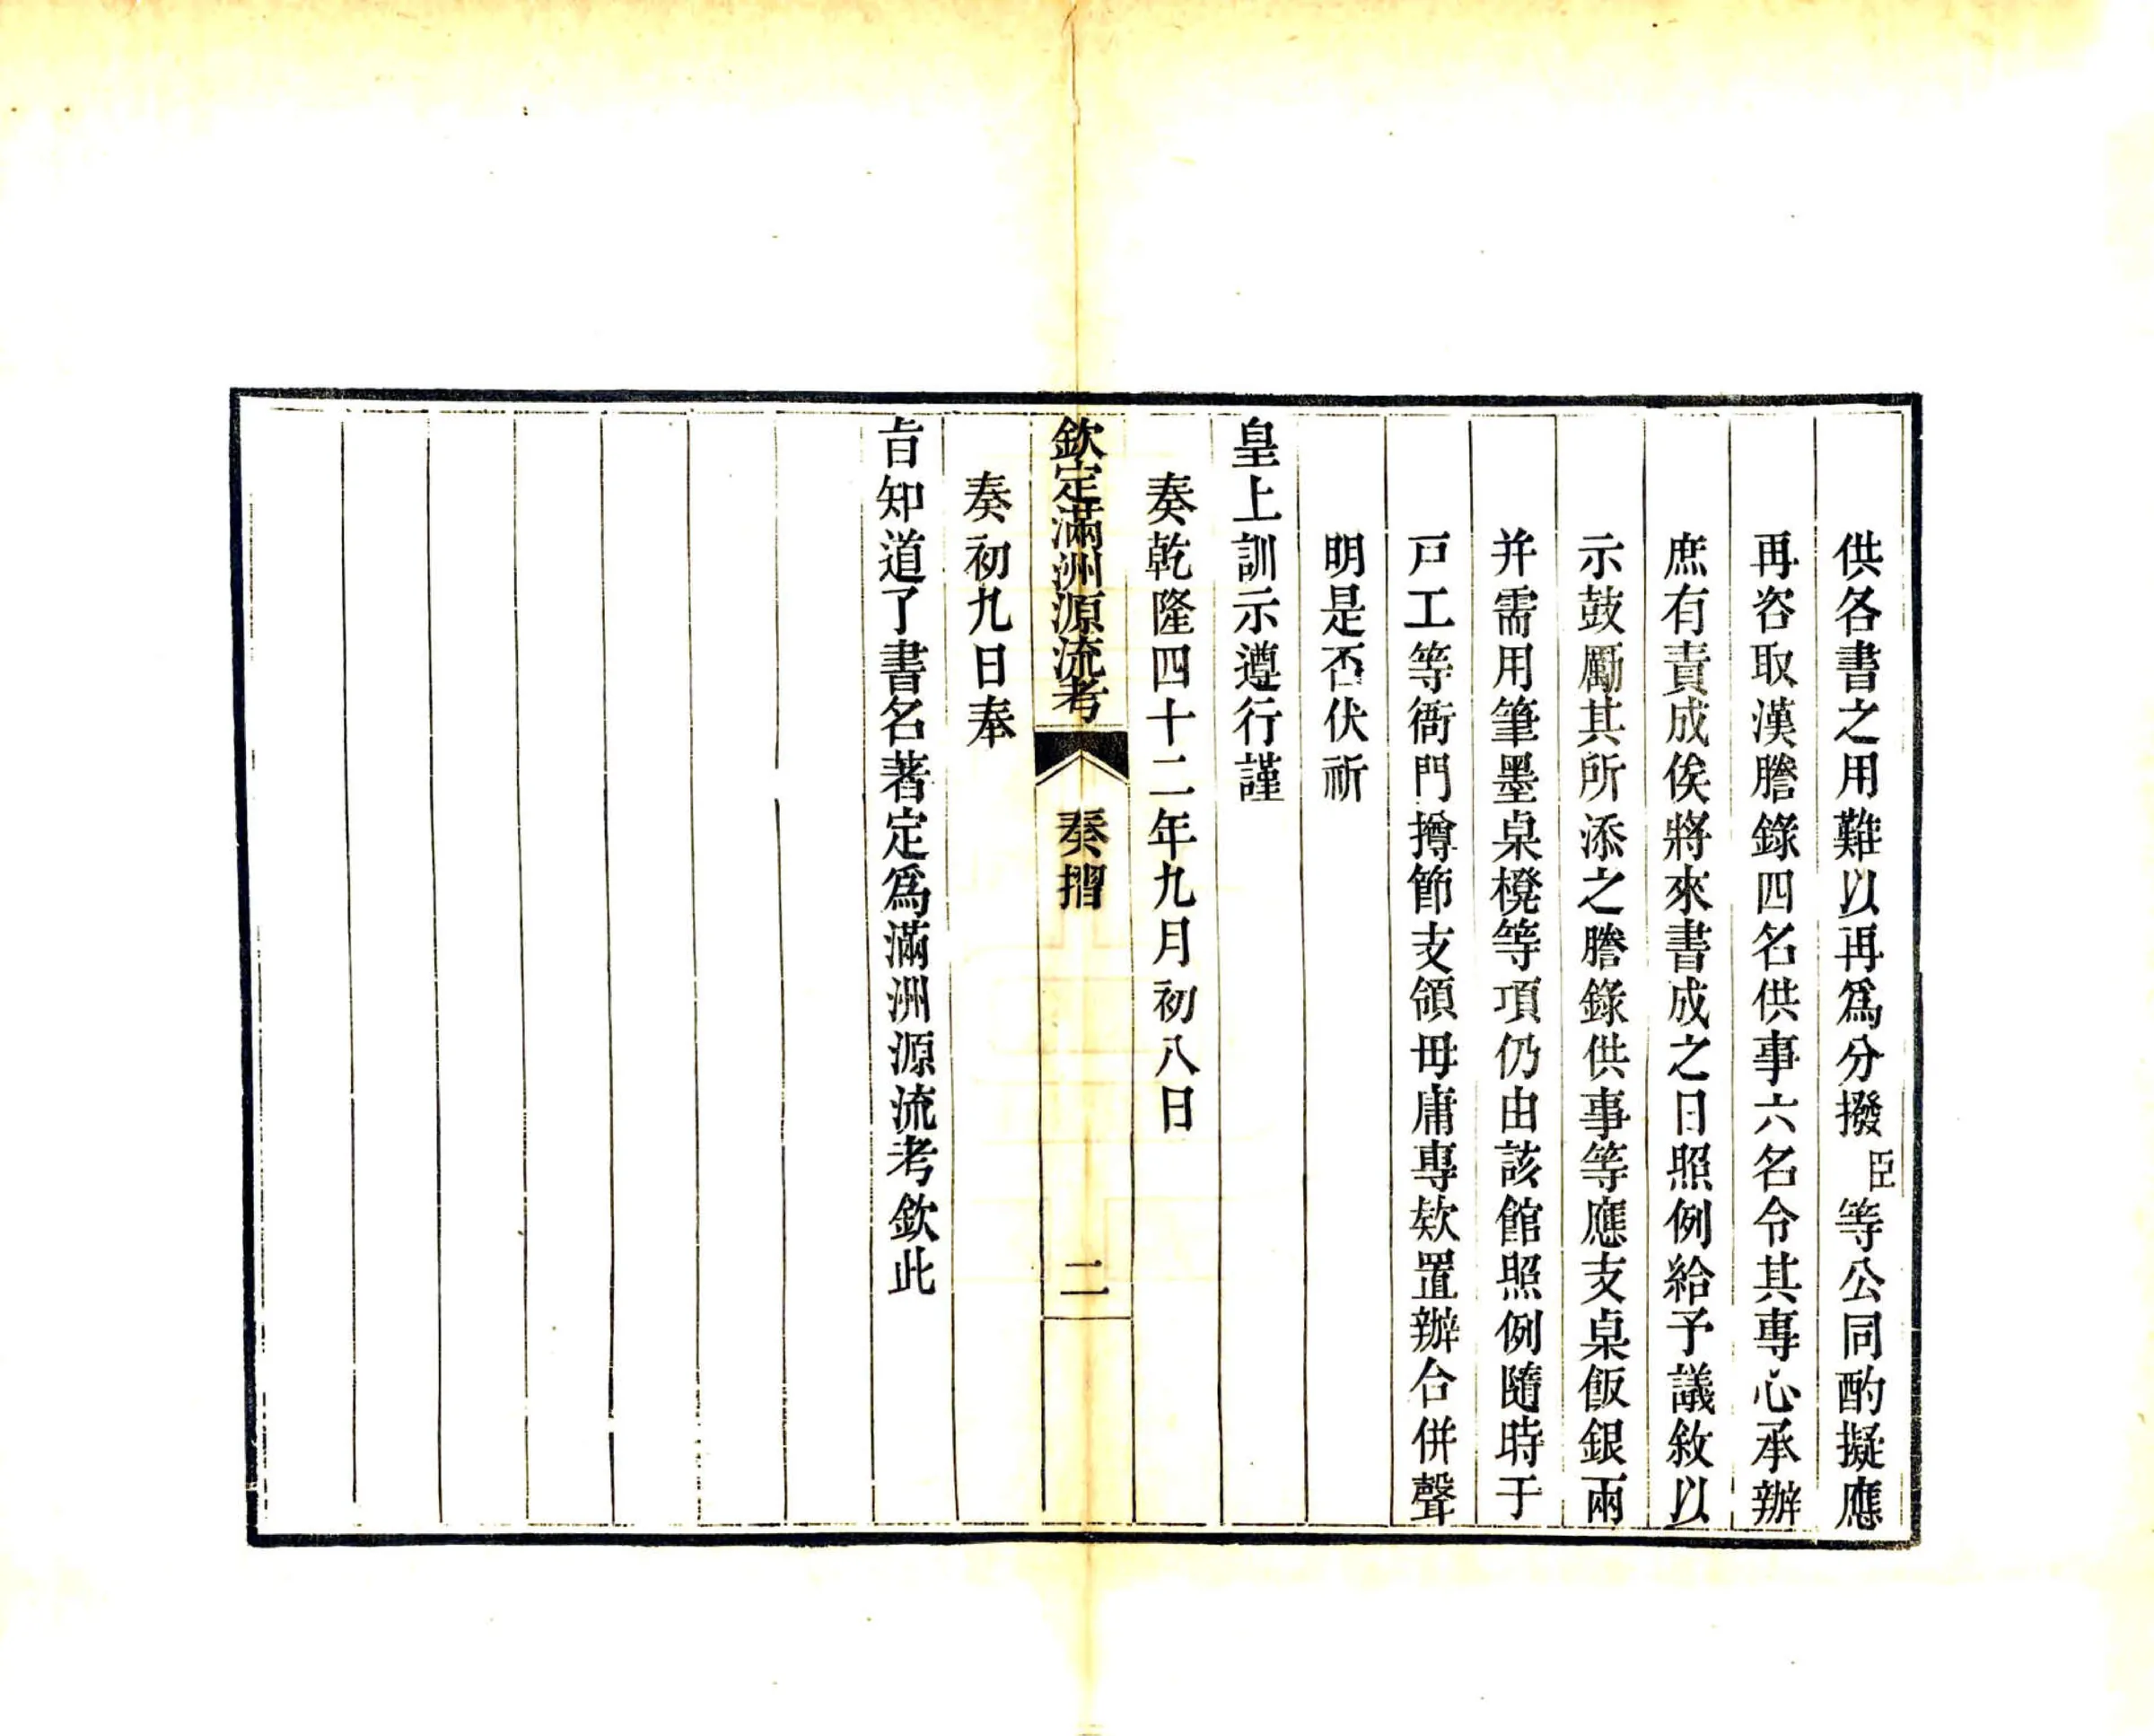 供各書之用難以再爲分撥臣等公同酌擬應
再咨取漢謄錄四名供事六名令其專心承辦
庶有責成俟將來書成之日照例給予議敘以
示鼓勵其所添之謄錄供事等應支桌飯銀兩
并需用筆墨桌櫈等項仍由該館照例隨時于
戸工等衙門撙節支領毋庸專欵置辦合併聲
明是否伏祈
皇上訓示遵行謹
奏乾隆四十二年九月初八日
欽定滿洲源流考 奏摺 二
奏初九日奉
旨知道了書名著定爲滿洲源流考欽此